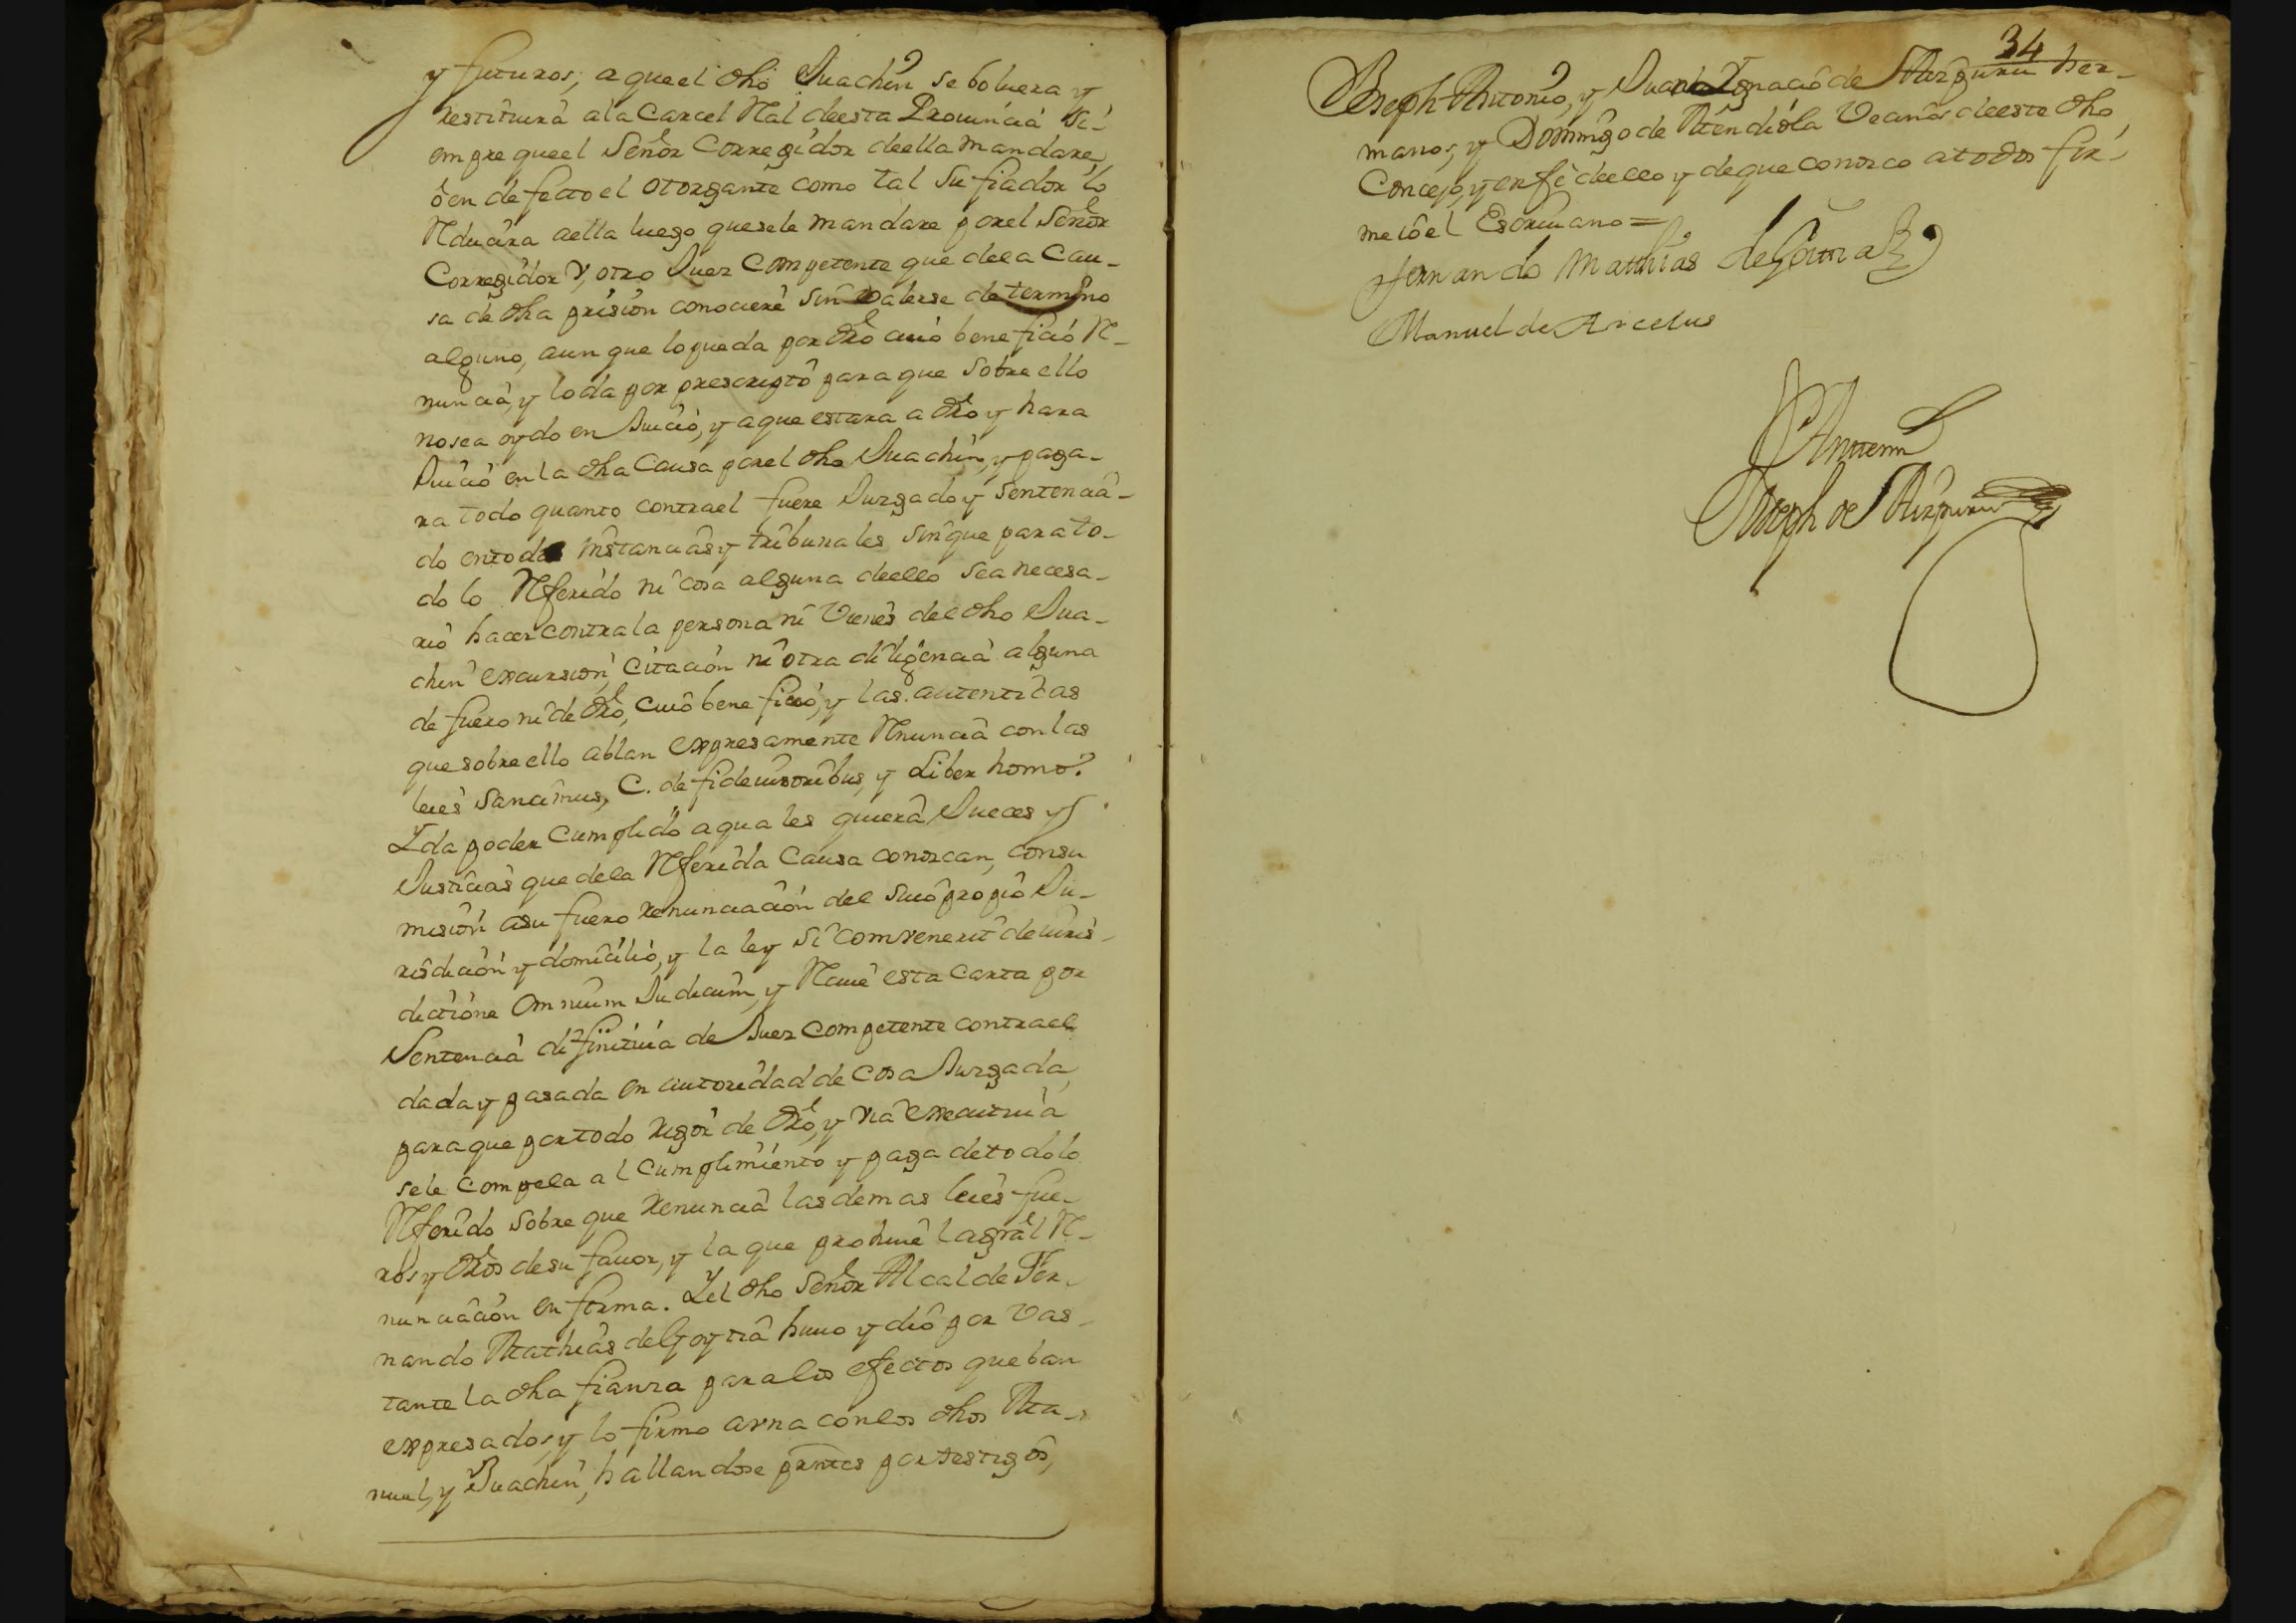 y futuros, a que el dho Juachin se boluera y
restituirá a la Carcel Rl al de esta Prouincia Si-
empre que el Señor Corregidor de ella mandare,
ò en defecto el otorgante como tal su fiador lo
Reducira a ella luego que se le mandare por el Señor
Corregidor Y, otro Juez Competente que de la Cau-
sa de dha prision conociere sin valerse de termino
alguno, aun que lo pueda por dro cuio beneficio Re-
nuncia, y lo da por prescripto para que Sobre ello
no sea oydo en Juicio, y a que estara a dro y hara
Juicio en la dha Causa por el dho Juachin, y paga-
ra todo quanto contra el fuere Juzgado y Sentencia-
do en todas instancias y tribunales sin que para to-
do lo Referido ni cosa alguna de ello sea necesa-
rio hacer contra la persona ni Vienes del dho Jua-
chin excursion, Citacion ni otra diligencia alguna
de fuero ni de dro, cuio beneficio, y las autenticas
que sobre ello ablan expresamente Renuncia con las
leies Sancimus, C. de fideiusoribus, y Liber homo.
Y da poder Cumplido a quales quiera Jueces y
Justicias que de la Referida Causa conozcan, con su
mision a su fuero renunciacion del Suio propio Ju-
risdicion y domicilio, y la ley Si convenerit de iuris-
dictione Omnium Judicum, y Reciue esta Carta por
Sentencia difinitiua de Juez Competente contra el
dada y pasada en autoridad de Cosa Juzgada,
para que por todo rigor de dro, y via executiua
se le Compela al Cumplimiento y paga de todo lo
Referido Sobre que renuncia las demas leies fue-
ros y dros de su fauor, y la que prohiue la gral Re-
nunciacion en forma. Y el dho Señor Alcalde Fer-
nando Mathias de Goytia huuo y dió por Vas-
tante la dha fianza para los efectos que ban
expresados, y lo firmo a vna con los dhos Ma-
nuel, y Juachin, hallandose prntes por testigos,
34
Joseph Antonio, y Juan Ignacio de Aizpuru her-
manos, y Domingo de Mendiola Vecinos de este dho
Concejo, y en fe de ello y de que conozco a todos fir-
me iò el Escriuano =
Fernando Matthias de Goitia
Manuel de Arcelus
Antemi
Joseph de Aizpuru